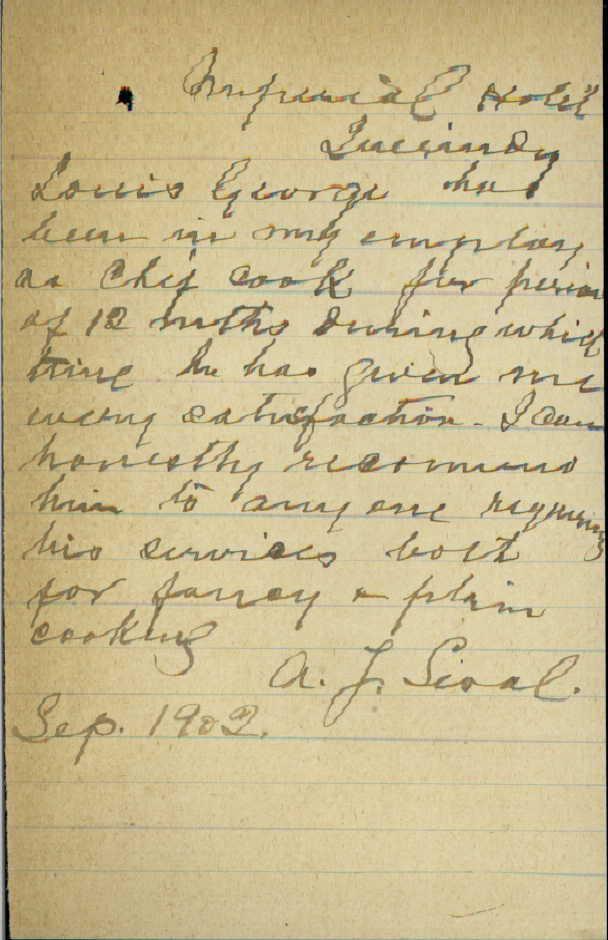 Imperial Hotel
Louis George has
been in my employ
as Chef cook for period
of 12 mths During which
time he has given me
every satisfaction. I can
honestly recomend
him to any one requiring
his services both
for fancy & plain
cooking
A. J.
Sep. 1902.